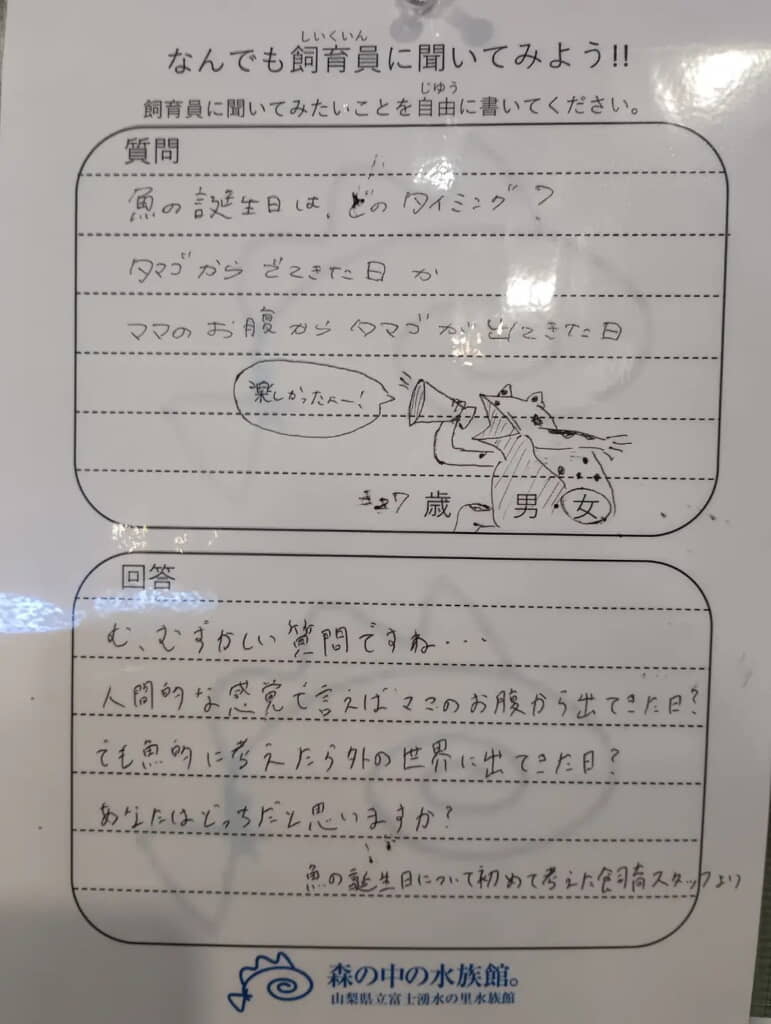 しいくいん
なんでも飼育員に聞いてみよう!!
じゆう
飼育員に聞いてみたいことを自由に書いてください。
質問
魚の誕生日は、どのタイミング?
タマゴからでてきた日 か
ママのお腹からタマゴが出てきた日
楽しかったよー!
27 歳 男 女
回答
む、むずかしい質問ですね・・・
人間的な感覚で言えばママのお腹から出てきた日?
でも魚的に考えたら外の世界に出てきた日?
あなたはどっちだと思いますか?
魚の誕生日について初めて考えた飼育スタッフより
森の中の水族館。
山梨県立富士湧水の里水族館